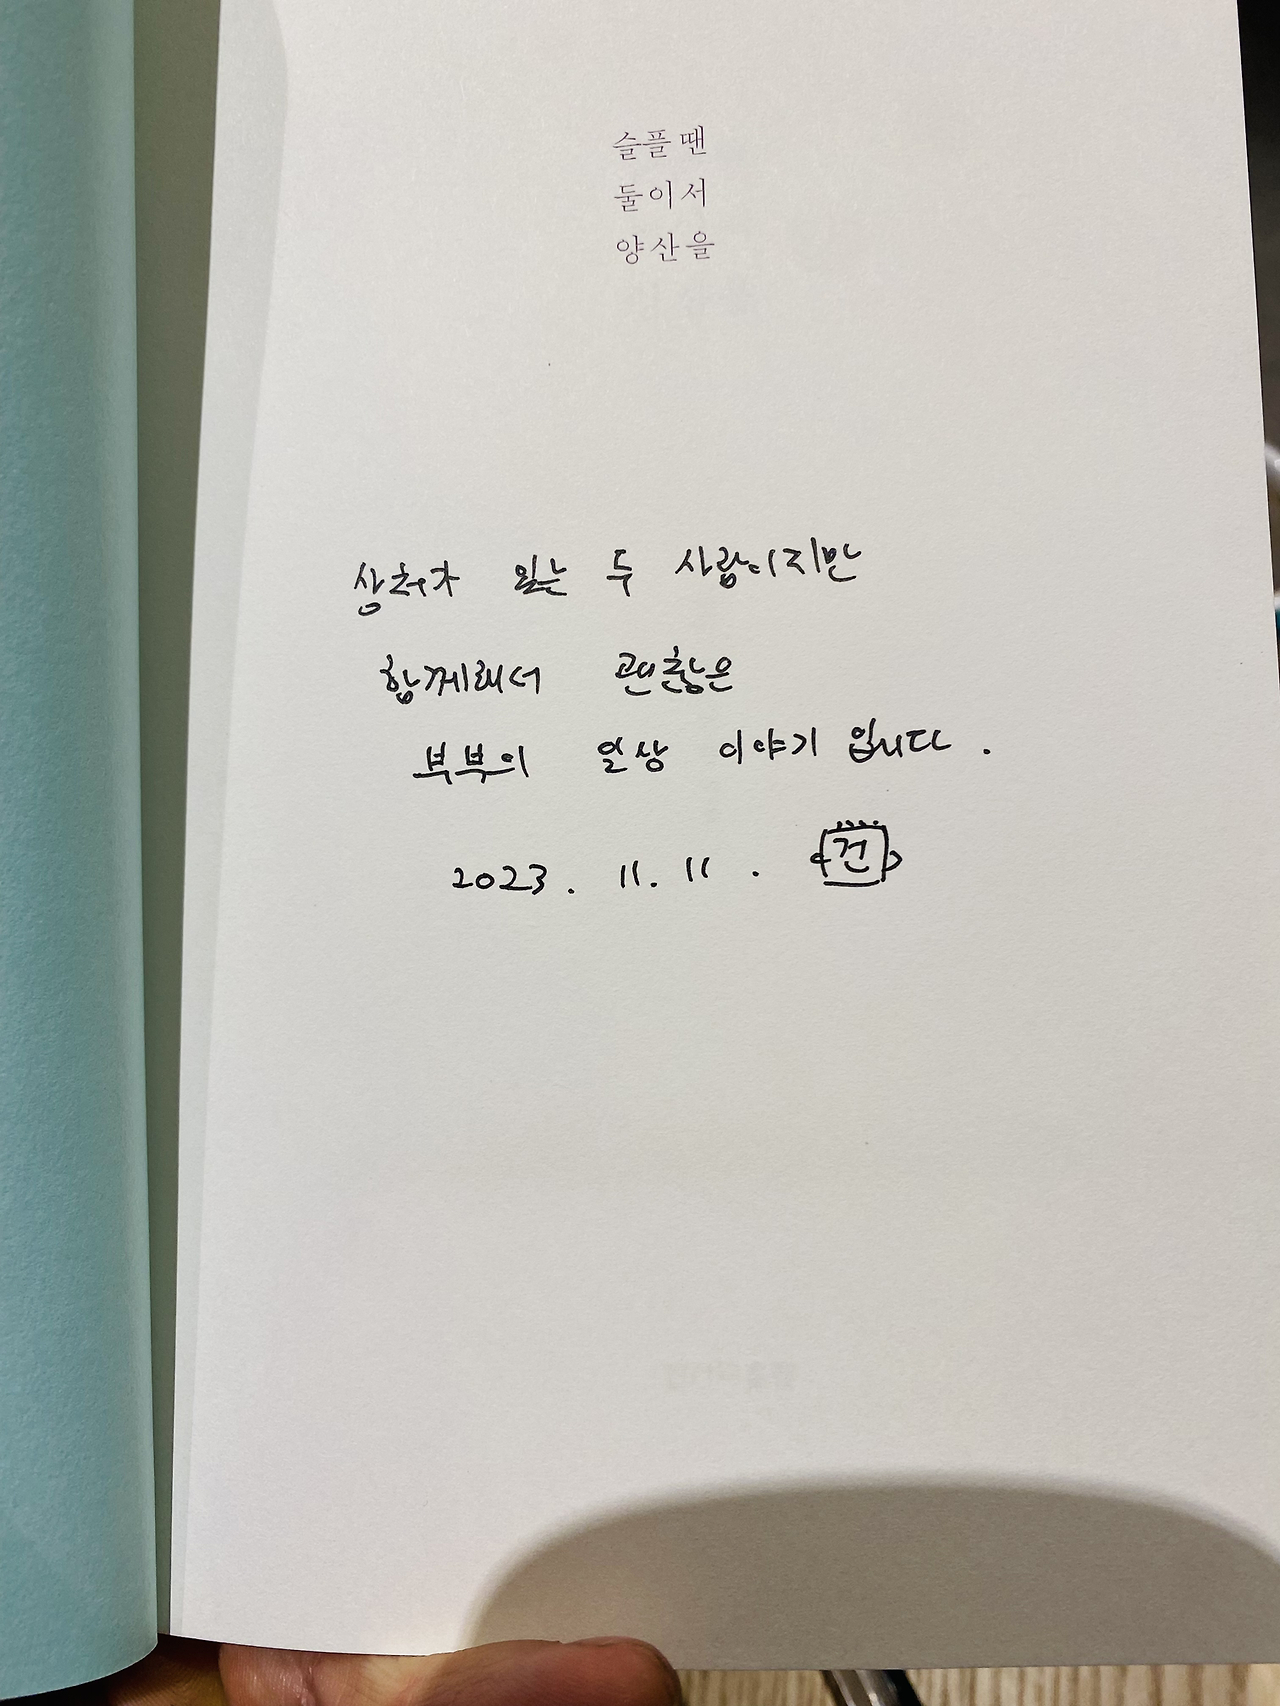 슬플 땐
둘이서
양산을
상처가 있는 두 사람이지만
함께라서 괜찮은
부부의 일상 이야기 입니다.
2023. 11. 11. 건